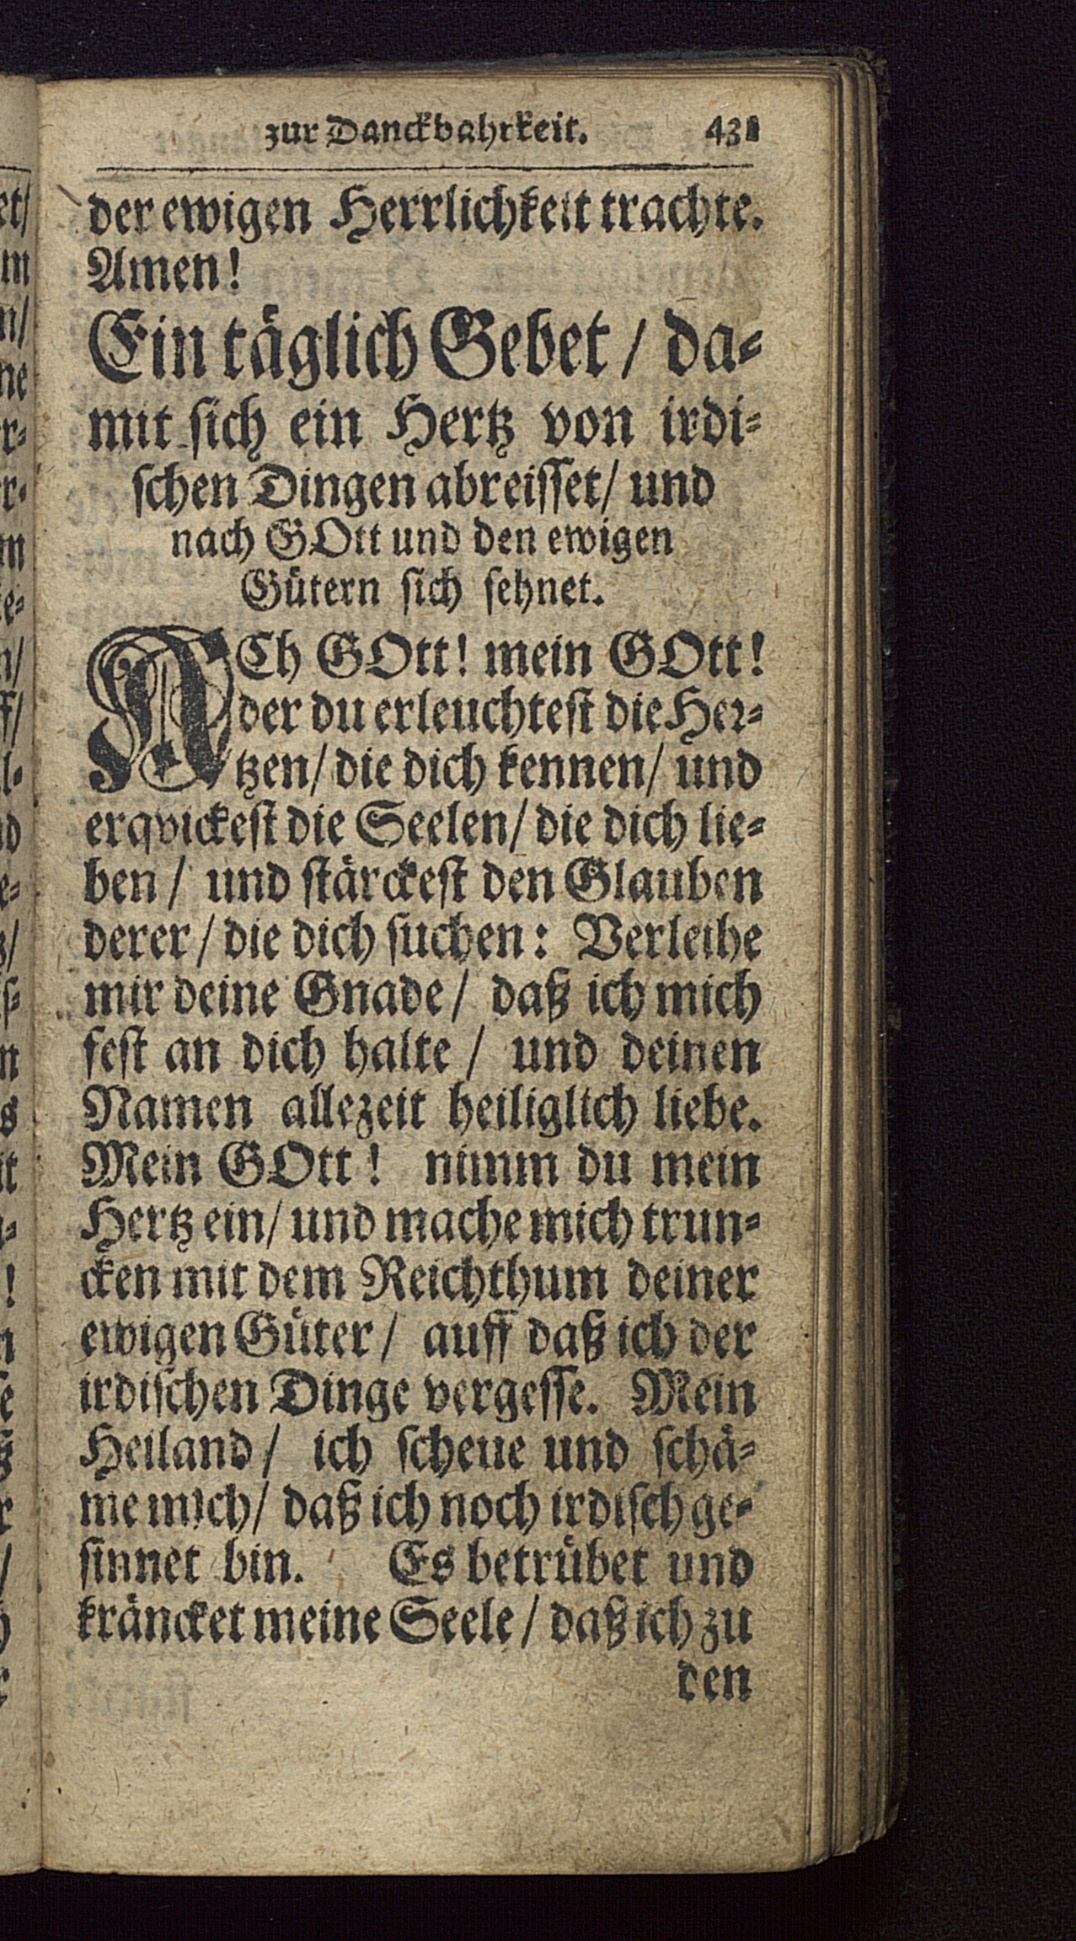 zur Danckbahrkeit. 431
der ewigen Herrlichkeit trachte.
Amen!
Ein täglich Gebet / da-
mit sich ein Hertz von irdi-
schen Dingen abreisset/ und
nach GOtt und den ewigen
Gütern sich sehnet.
ACh GOtt! mein GOtt!
der du erleuchtest die Her-
tzen/ die dich kennen/ und
erqvickest die Seelen/ die dich lie-
ben / und stärckest den Glauben
derer / die dich suchen: Verleihe
mir deine Gnade / daß ich mich
fest an dich halte / und deinen
Namen allezeit heiliglich liebe.
Mein GOtt! nimm du mein
Hertz ein/ und mache mich trun-
cken mit dem Reichthum deiner
ewigen Güter / auff daß ich der
irdischen Dinge vergesse. Mein
Heiland / ich scheue und schä-
me mich/ daß ich noch irdisch ge-
sinnet bin. Es betrübet und
kräncket meine Seele / daß ich zu
den